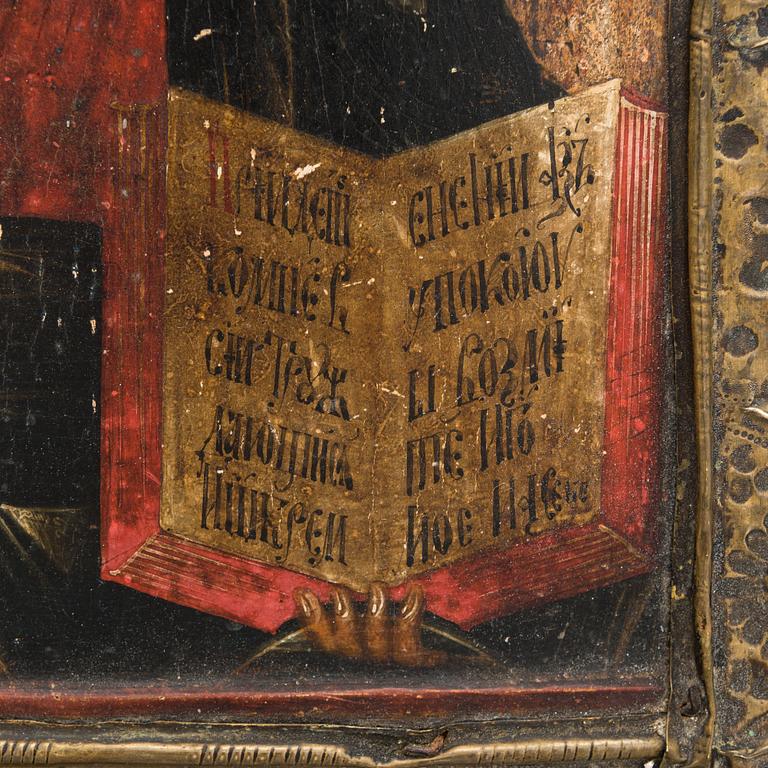 Прїидѣт
ко мнѣ в
си трꙋж
дающися
и ѡкрем
ененїи и азъ
упокою
вы возмі
те иго
мое на себе